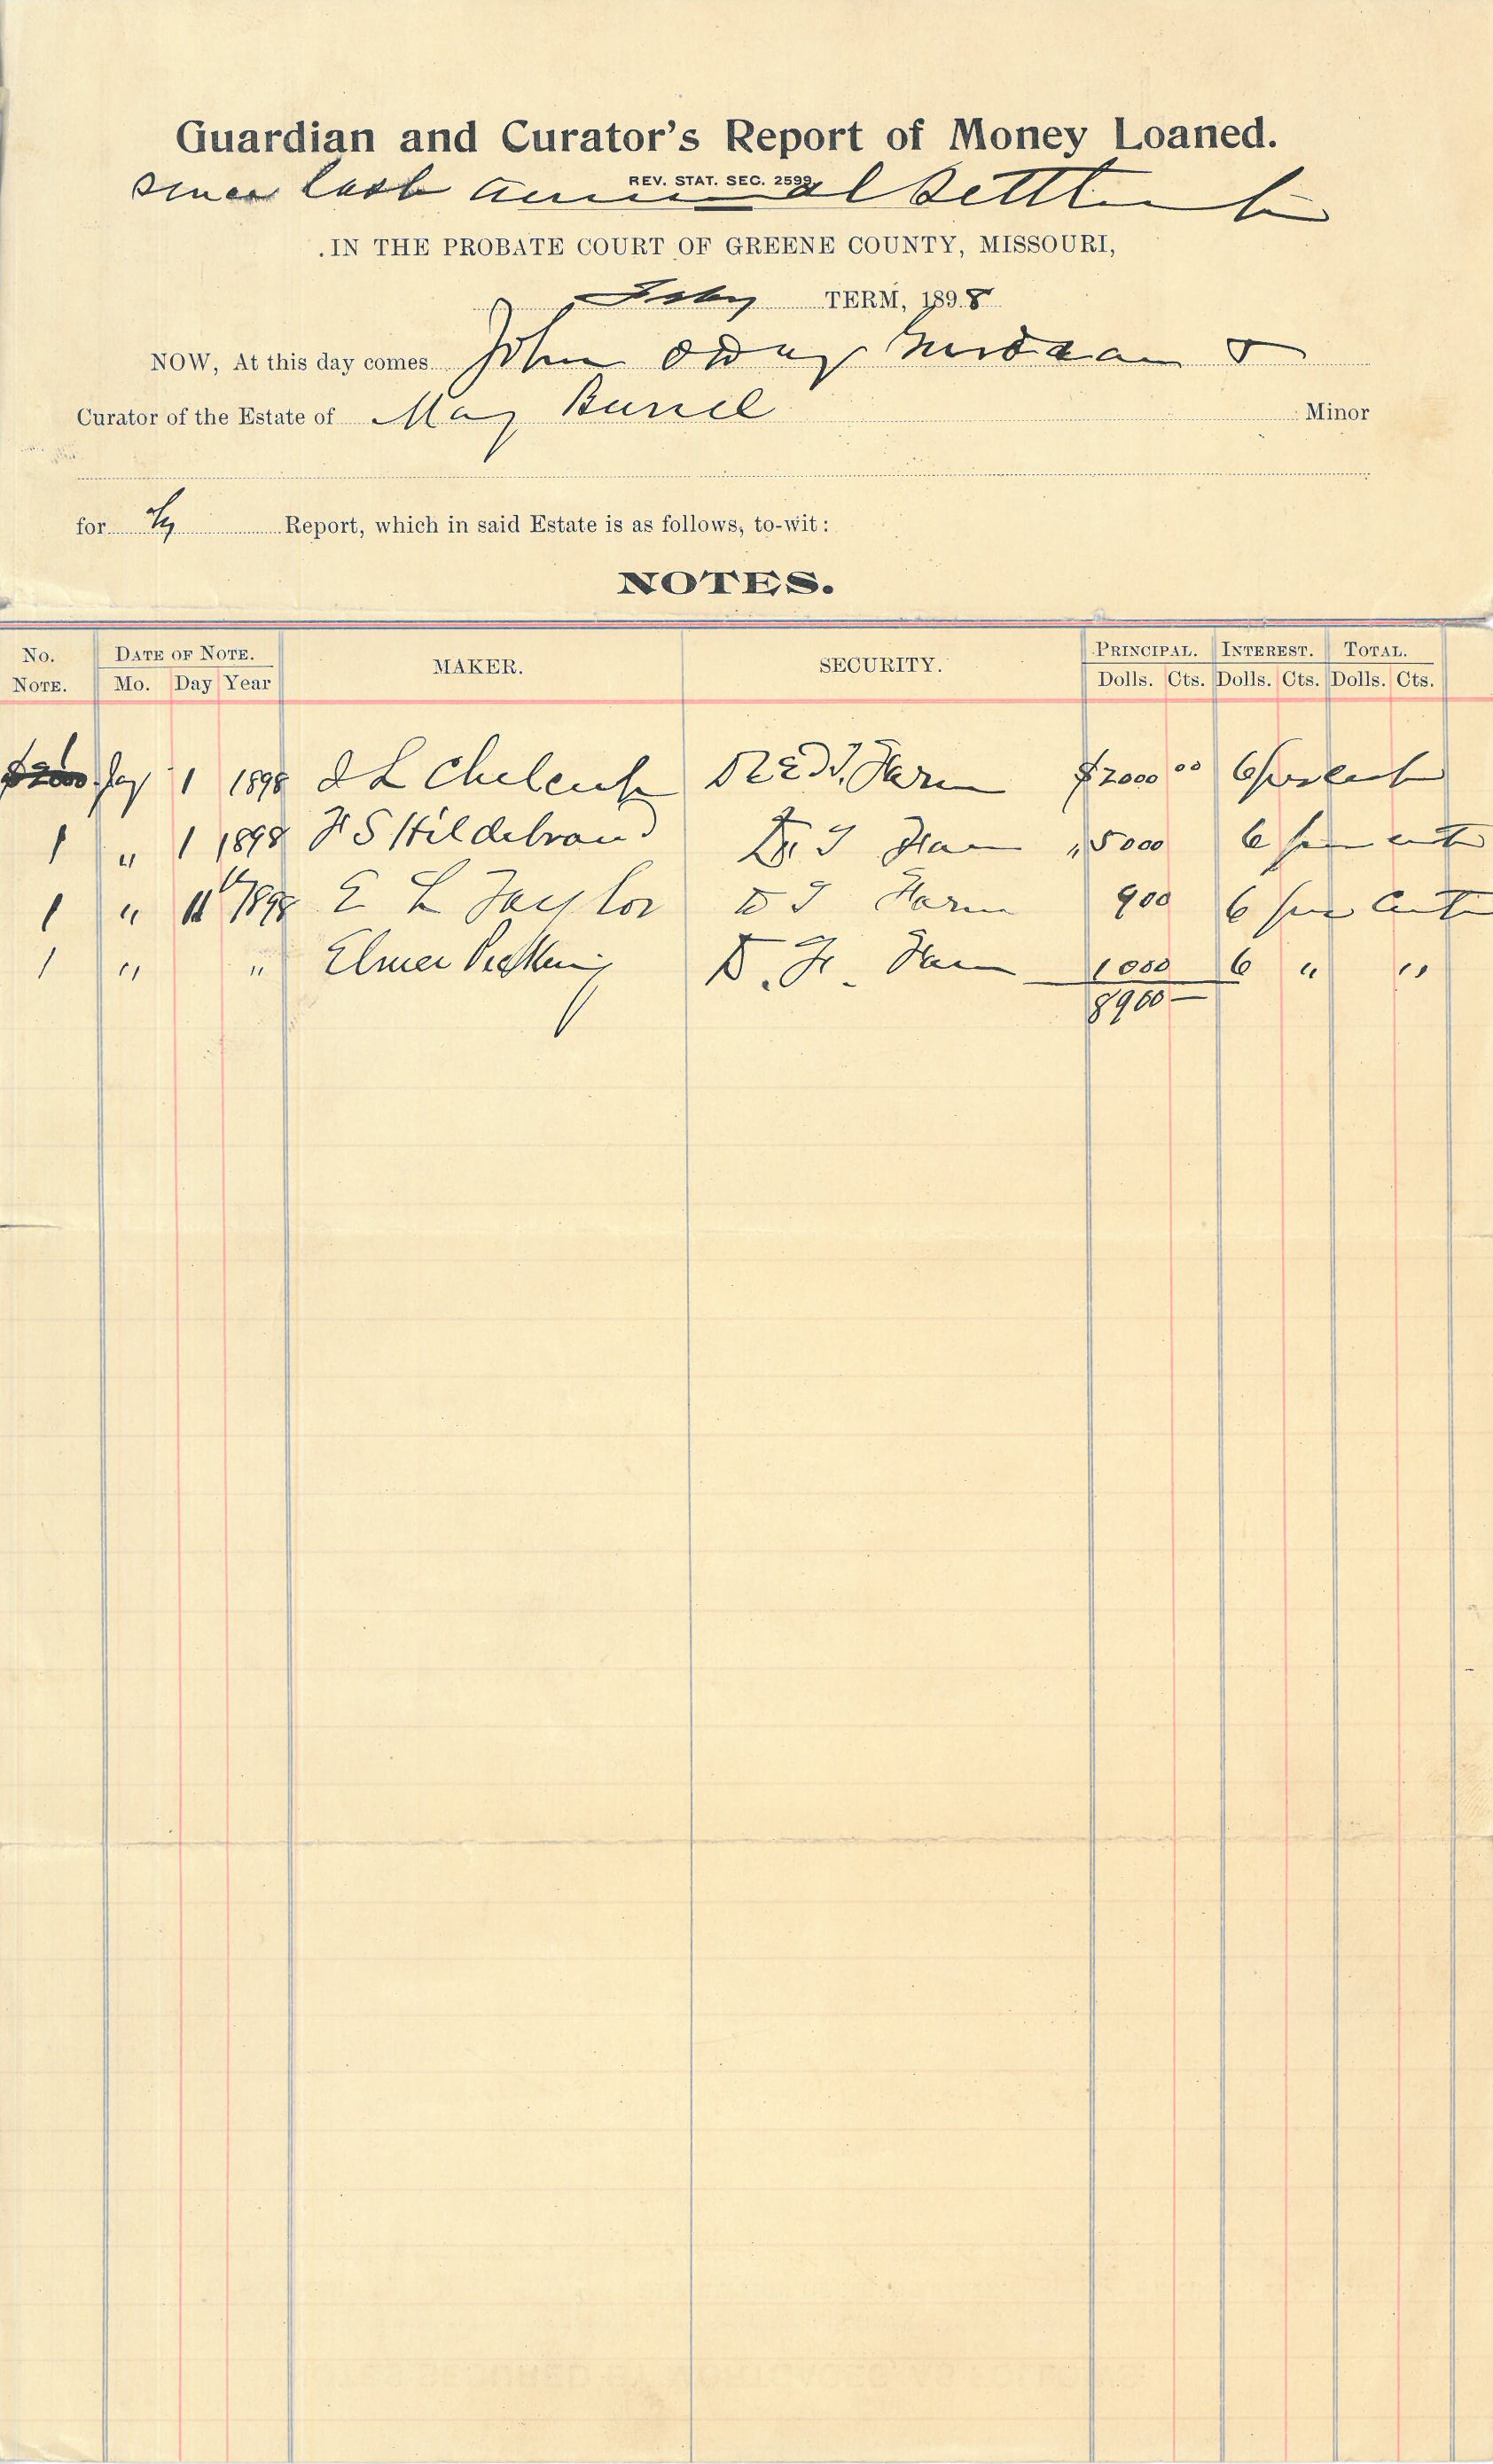 Guardian and Curator's Report of Money Loaned.
REV. STAT. SEC. 2599
since last annual Settlement
IN THE PROBATE COURT OF GREENE COUNTY, MISSOURI,
TERM, 1898
NOW, At this day comes John
Curator of the Estate of May Minor
for Report, which in said Estate is as follows, to-wit:
NOTES.
No. NOTE. DATE OF NOTE. MAKER. SECURITY. PRINCIPAL. INTEREST. TOTAL.
Mo. Day Year Dolls. Cts. Dolls. Cts. Dolls. Cts.
1 1 1898 L Farm $2000 00 6 per cent
1 " 1 1898 F S Hildebrand D. T Farm " 5000 6 per cent
1 " 1898 E L Taylor D T Farm 900 6 per cent
1 " " Elmer D. T. Farm 1000 6 " "
8900 —